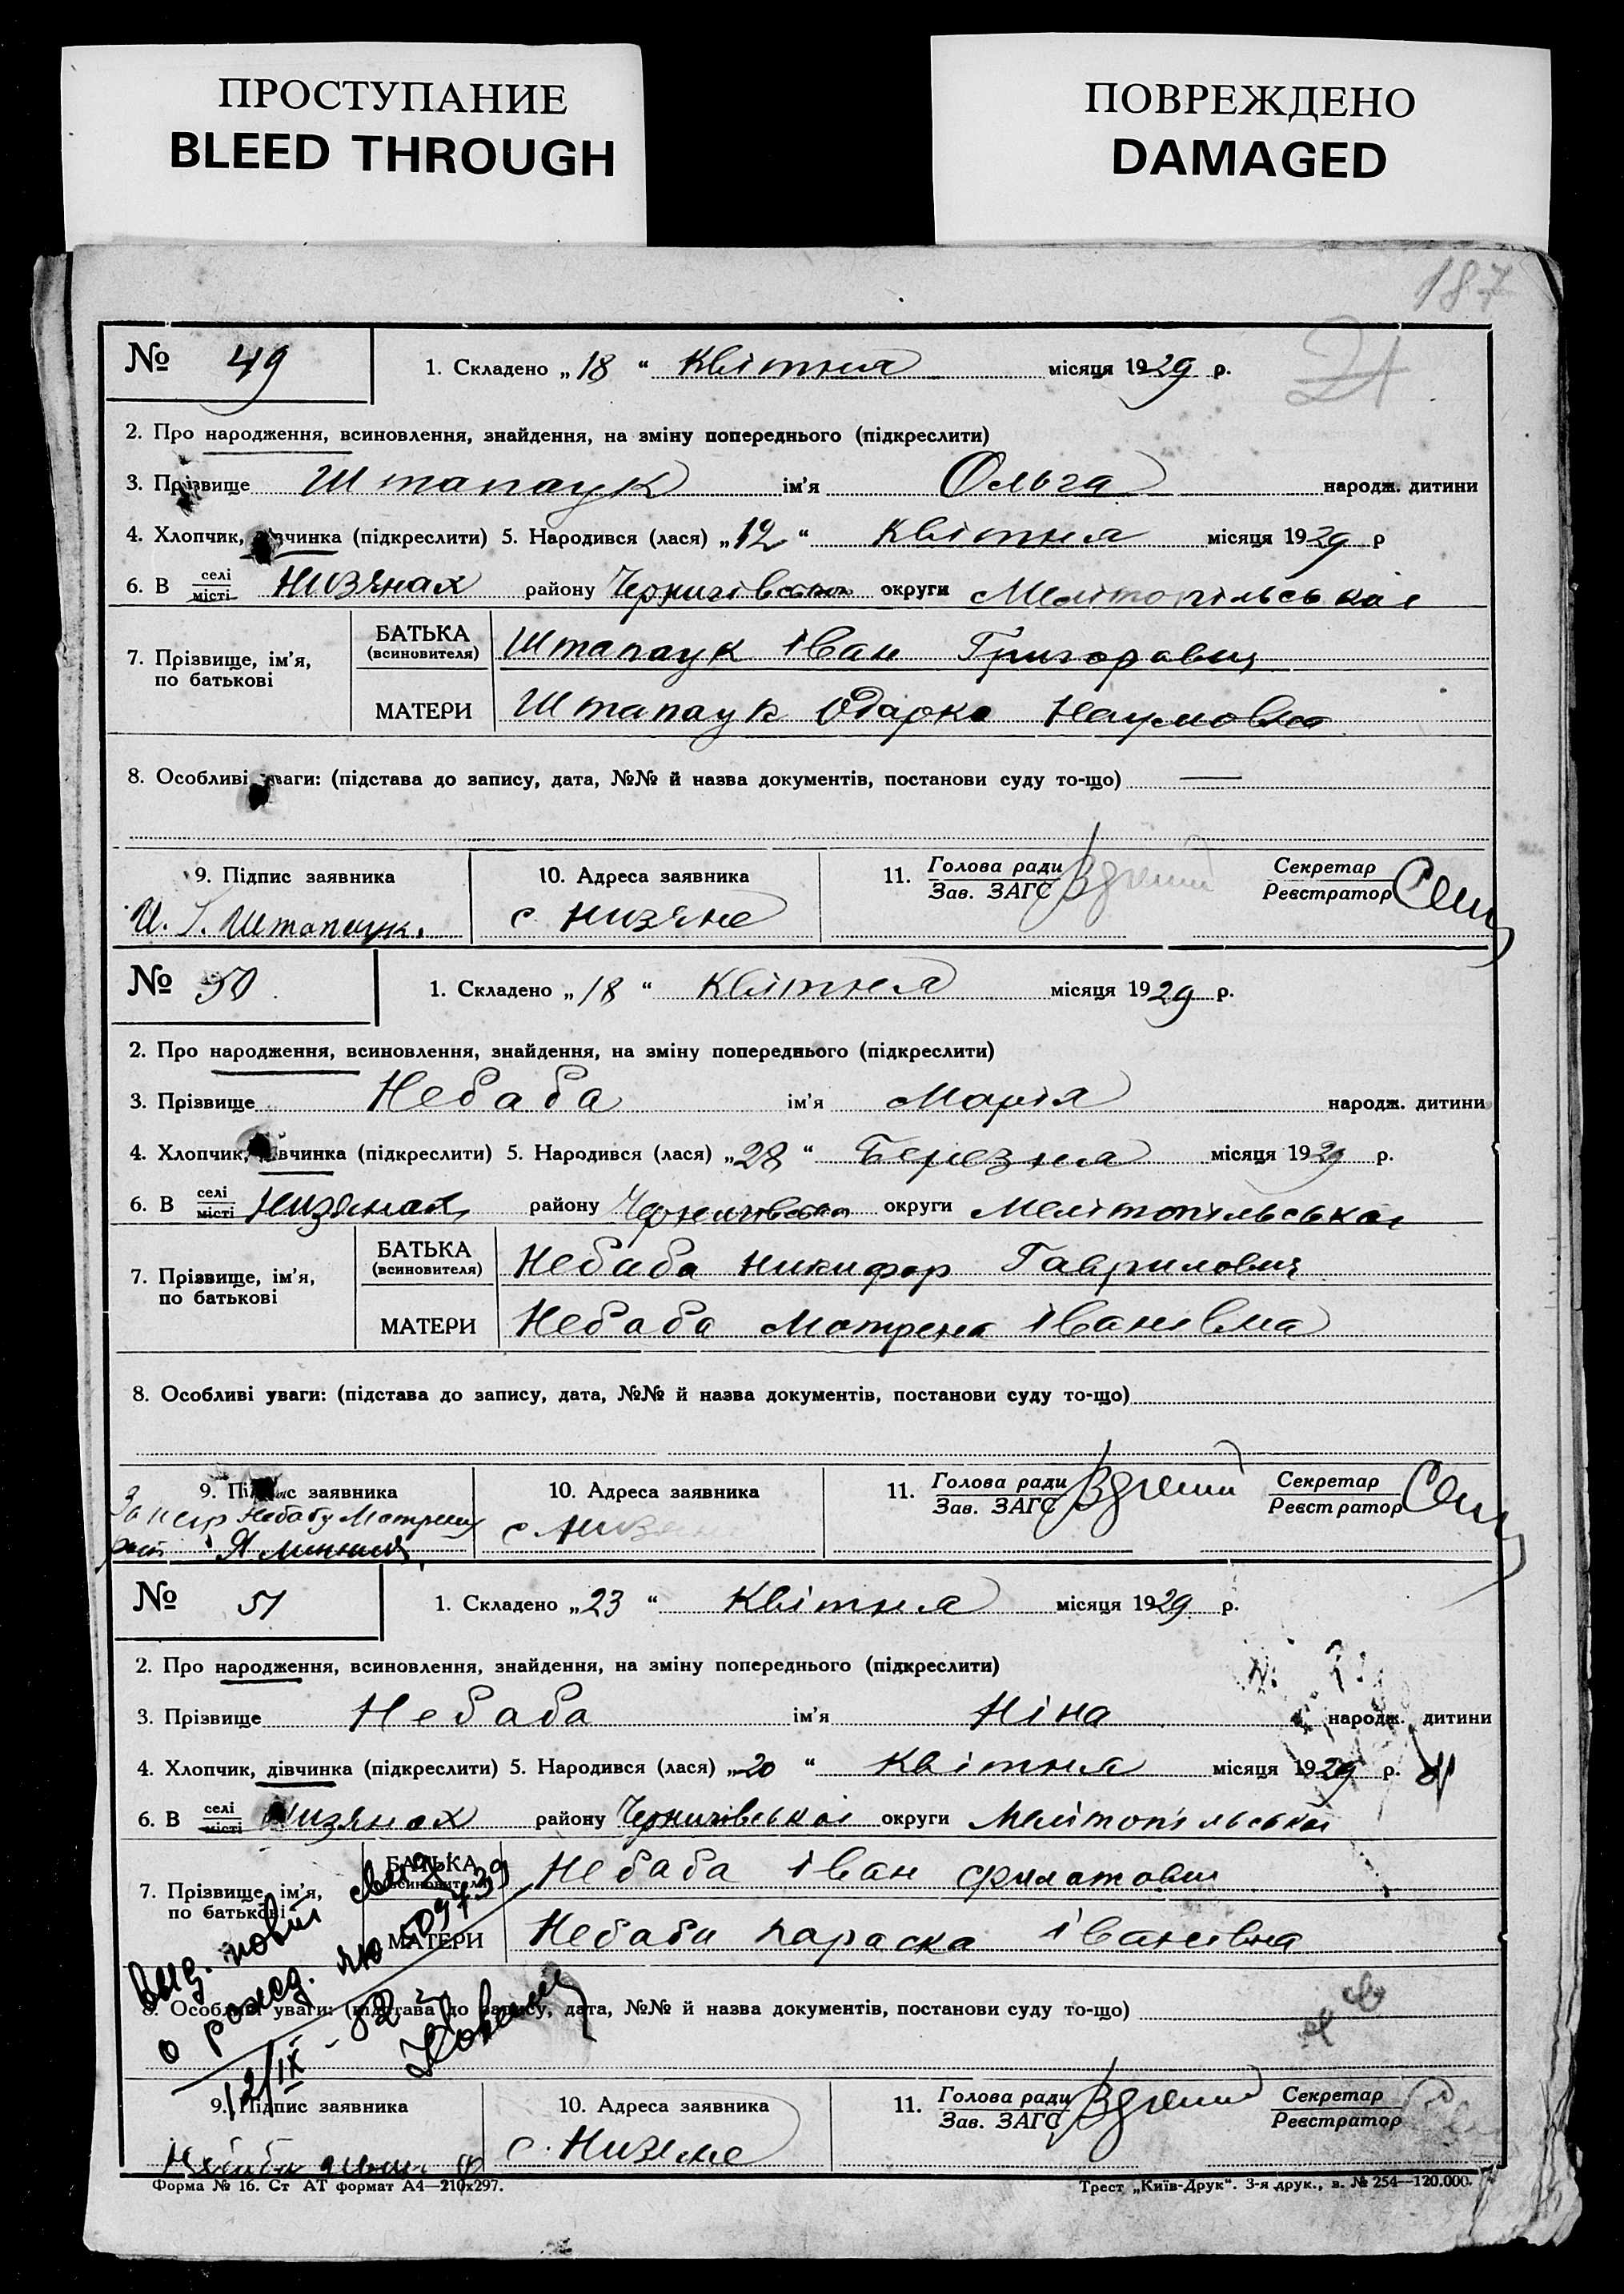 ПРОСТУПАНИЕ
BLEED THROUGH
ПОВРЕЖДЕНО
DAMAGED
187
№ 49 1. Складено „18“ Квітня місяця 1929 р.
2. Про народження, всиновлення, знайдення, на зміну попереднього (підкреслити)
3. Прізвище Штапаук ім'я Ольга народж. дитини
4. Хлопчик, дівчинка (підкреслити) 5. Народився (лася) „12“ Квітня місяця 1929 р
6. В селі місті Низянах району Чернигівської округи Мелітопільської
7. Прізвище, ім'я, по батькові
БАТЬКА (всиновителя) Штапаук Іван Григорович
МАТЕРИ Штапаук Одарка Наумовна
8. Особливі уваги: (підстава до запису, дата, №№ й назва документів, постанови суду то-що) —
9. Підпис заявника 10. Адреса заявника 11. Голова ради Зав. ЗАГС Секретар Реєстратор
И. Г. Штапаук. с Низяне
№ 50 1. Складено „18“ Квітня місяця 1929 р.
2. Про народження, всиновлення, знайдення, на зміну попереднього (підкреслити)
3. Прізвище Небаба ім'я Марія народж. дитини
4. Хлопчик, дівчинка (підкреслити) 5. Народився (лася) „28“ Березня місяця 1929 р.
6. В селі місті Низянах району Чернигівської округи Мелітопільської
7. Прізвище, ім'я, по батькові
БАТЬКА (всиновителя) Небаба Никифор Гаврилович
МАТЕРИ Небаба Мотрена Іванівна
8. Особливі уваги: (підстава до запису, дата, №№ й назва документів, постанови суду то-що)
9. Підпис заявника 10. Адреса заявника 11. Голова ради Зав. ЗАГС Секретар Реєстратор
За негр Небабу Мотрену
с Низяне
№ 51 1. Складено „23“ Квітня місяця 1929 р.
2. Про народження, всиновлення, знайдення, на зміну попереднього (підкреслити)
3. Прізвище Небаба ім'я Ніна народж. дитини
4. Хлопчик, дівчинка (підкреслити) 5. Народився (лася) „20“ Квітня місяця 1929 р.
6. В селі місті Низянах району Чернигівської округи Мелітопільської
7. Прізвище, ім'я, по батькові
БАТЬКА (всиновителя) Небаба Іван Филатович
МАТЕРИ Небаби Параска Іванівна
Выд. повт. свид.
о рожд.
12/IX - 82 г
8. Особливі уваги: (підстава до запису, дата, №№ й назва документів, постанови суду то-що)
9. Підпис заявника 10. Адреса заявника 11. Голова ради Зав. ЗАГС Секретар Реєстратор
с. Низяне
Форма № 16. Ст АТ формат А4—210х297.
Трест „Київ-Друк“. 3-я друк., в. № 254—120.000.